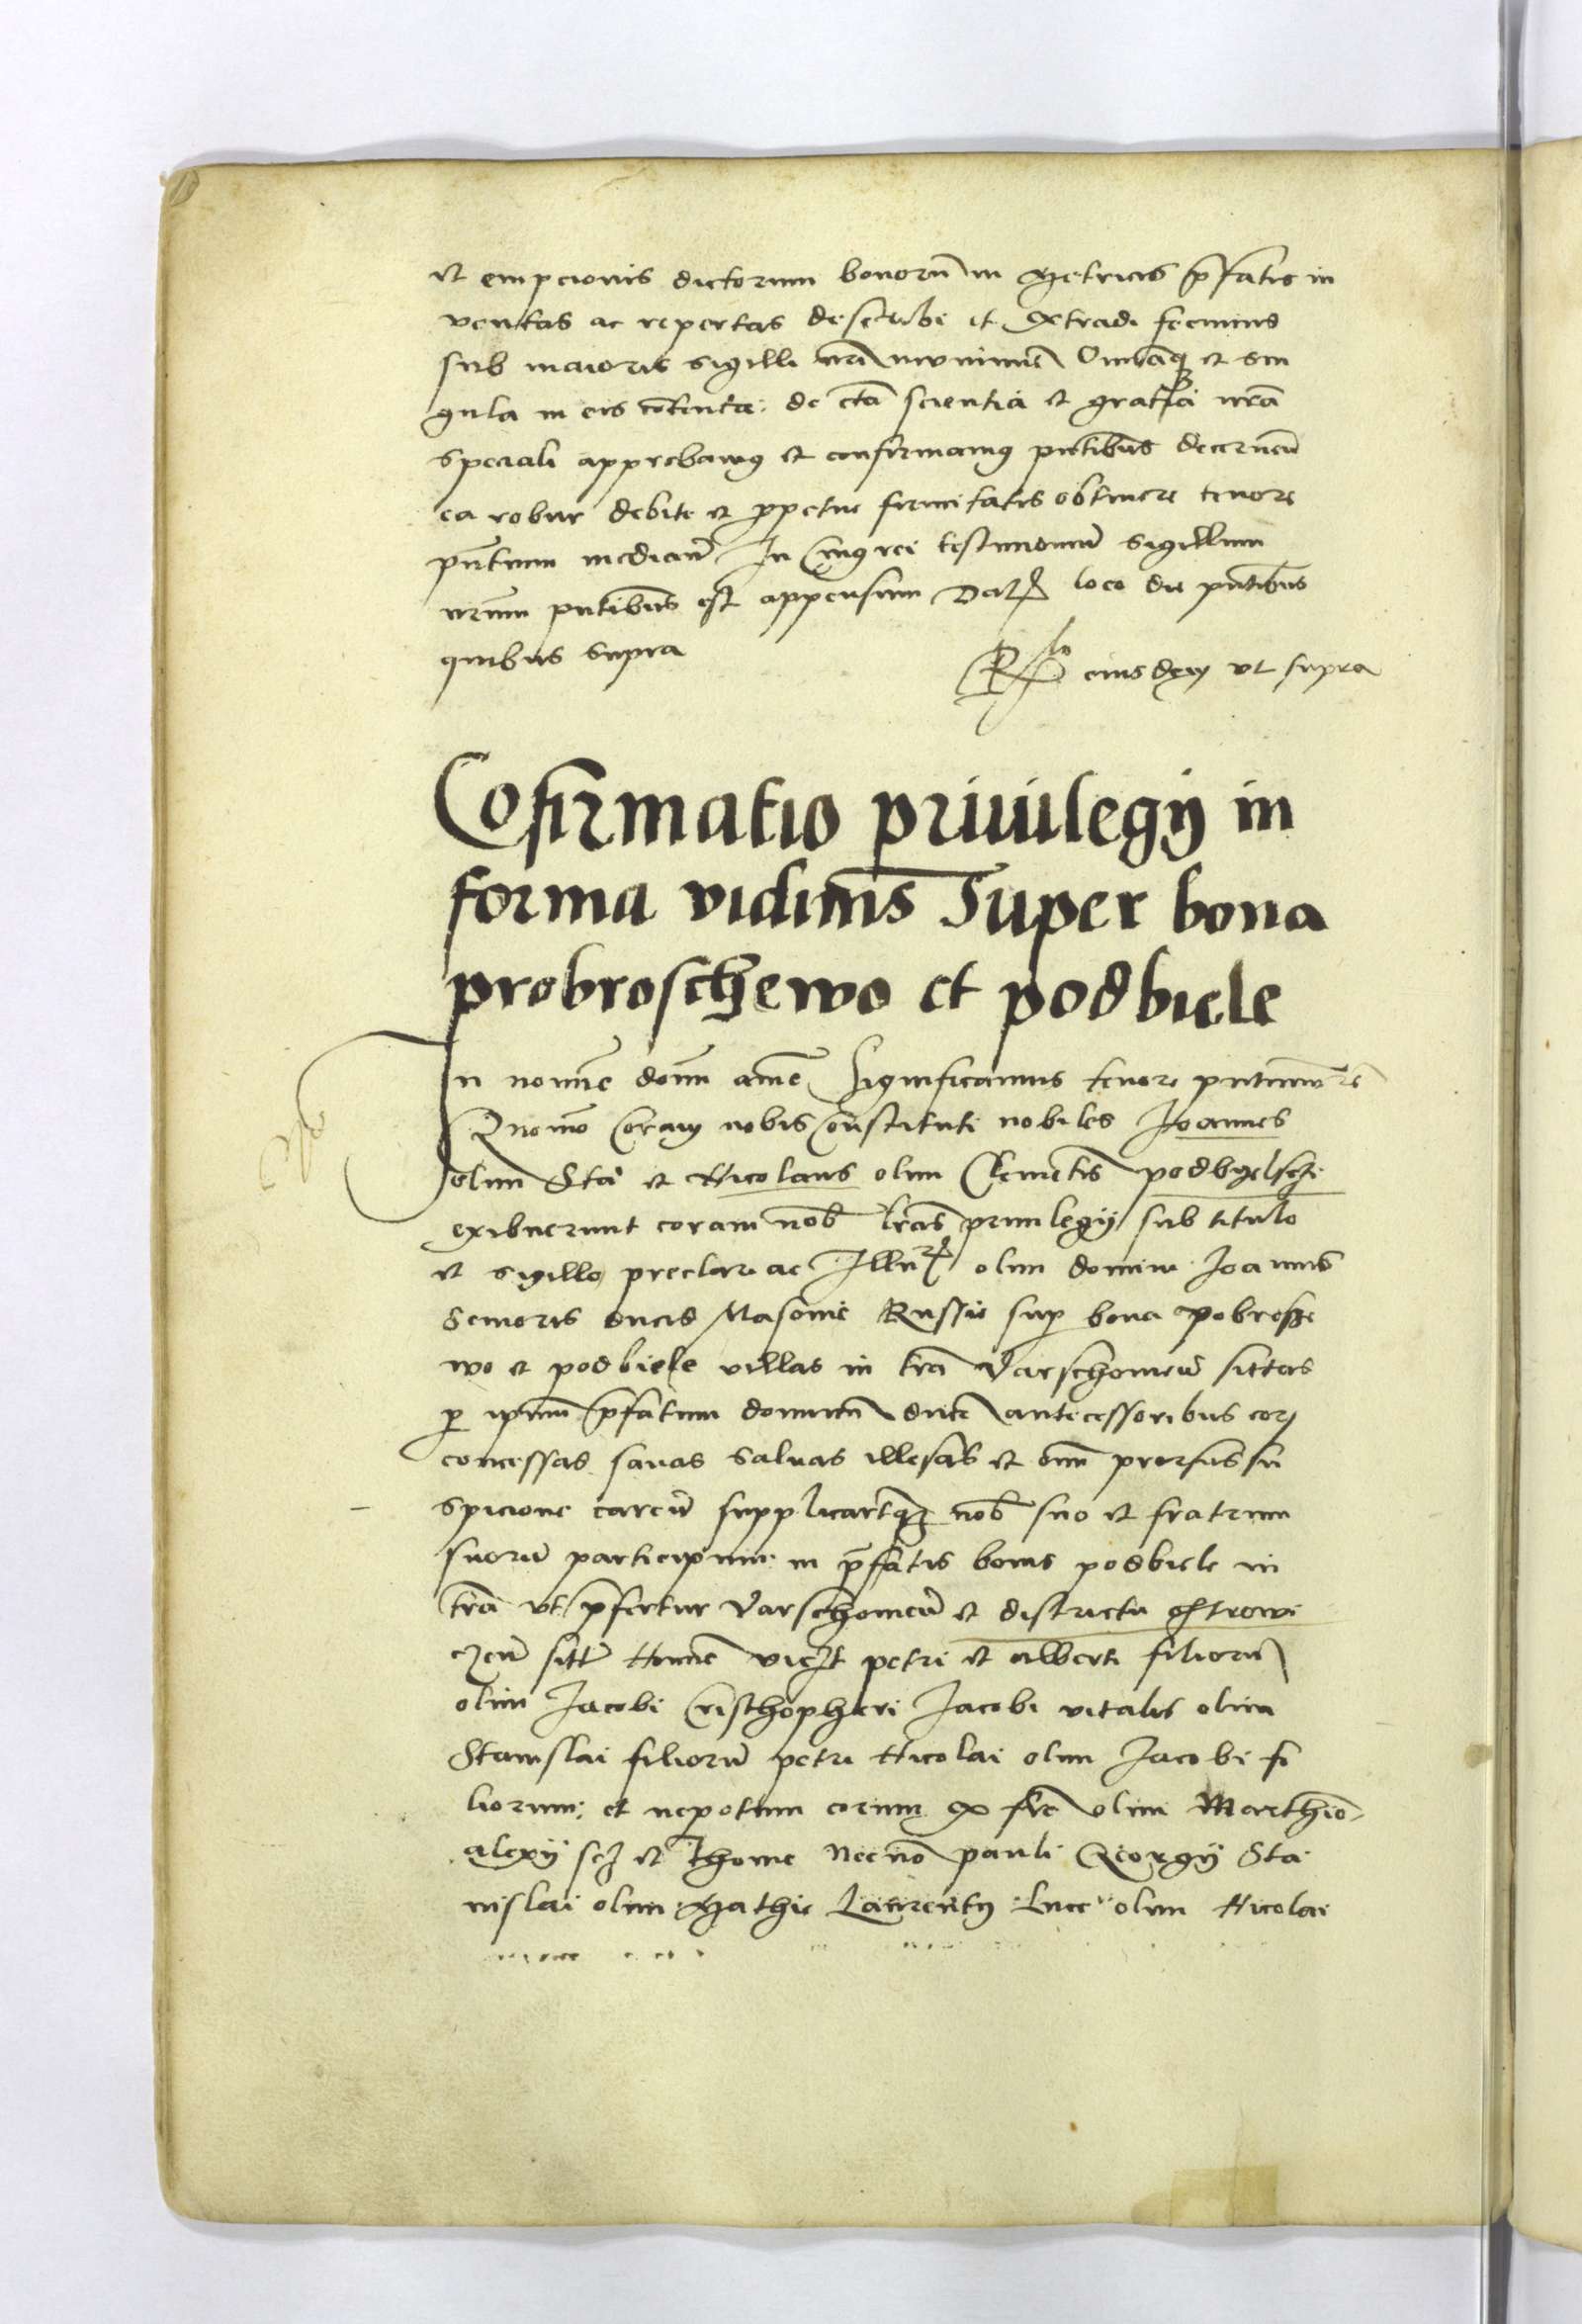 et empcionis dictorum bonorū in Metricis p̄fatis in
ventas ac repertas describi et extradi fecimus
sub maioris sigilli nr̄i munimīe Omīaq̨ et sin
gula in eis cōtenta: de c̄ta scientia et gratia nr̄a
speciali approbamꝰ et confirmamꝰ pn̄tibus decernen̄
ea robur debite et ꝑpetue firmitatis obtinere tenore
pn̄tium median̄ In Cuiꝰ rei testimoniū sigillum
nr̄um pn̄tibus est appensum Datꝭ loco die pn̄tibus
quibus supra
R̄lo eiusdem vt supra
Cōfirmatio priuilegÿ in
forma vidimꝰ Super bona
probroschewo et podbiele
In nomīe domī amē Significamus tenore pn̄tium rē
Quomō Coram nobis Constituti nobiles Joannes
olim Sta et Nicolaus olim Clemētis podbyelscȝi
exibuerunt coram nob̄ lr̄as priuilegÿ sub titulo
et sigillo preclari ac Illuꝝ olim domini Joannis
Senioris ducis Masouie Russie suꝑ bona pobrosze
wo et podbiele villas in tr̄a Varschouien̄ sittas
ꝑ ipsum p̄fatum dominū ducē antecessoribus eorꝝ
concessas sanas saluas illesas et omī prorsus su
spicione caren̄ supplicarūtq̨ nob̄ suo et fratrum
suorū participum in p̄fatis bonis podbiele in
tr̄a vt p̄fertur Varschouien̄ et districtu Ostrowi
czen̄ sitt̄ Nomīe vicȝt petri et alberti filiorū
olim Jacobi Cristhopheri Jacobi vitalis olim
Stanislai filiorū petri Nicolai olim Jacobi fi
liorum: et nepotum eorum ex fr̄e olim Marthīo
alexÿ scȝ et Thome Necnō pauli Georgÿ Sta
nislai olim Mathie Laurentÿ Luce olim Nicolai